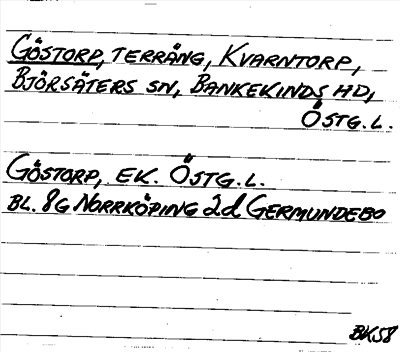 GÖSTORP, TERRÄNG, KVARNTORP,
BJÖRSÄTERS SN, BANKEKINDS HD,
ÖSTG. L.
GÖSTORP, EK. ÖSTG. L.
BL. 8G NORRKÖPING 2d GERMUNDEBO
BK58